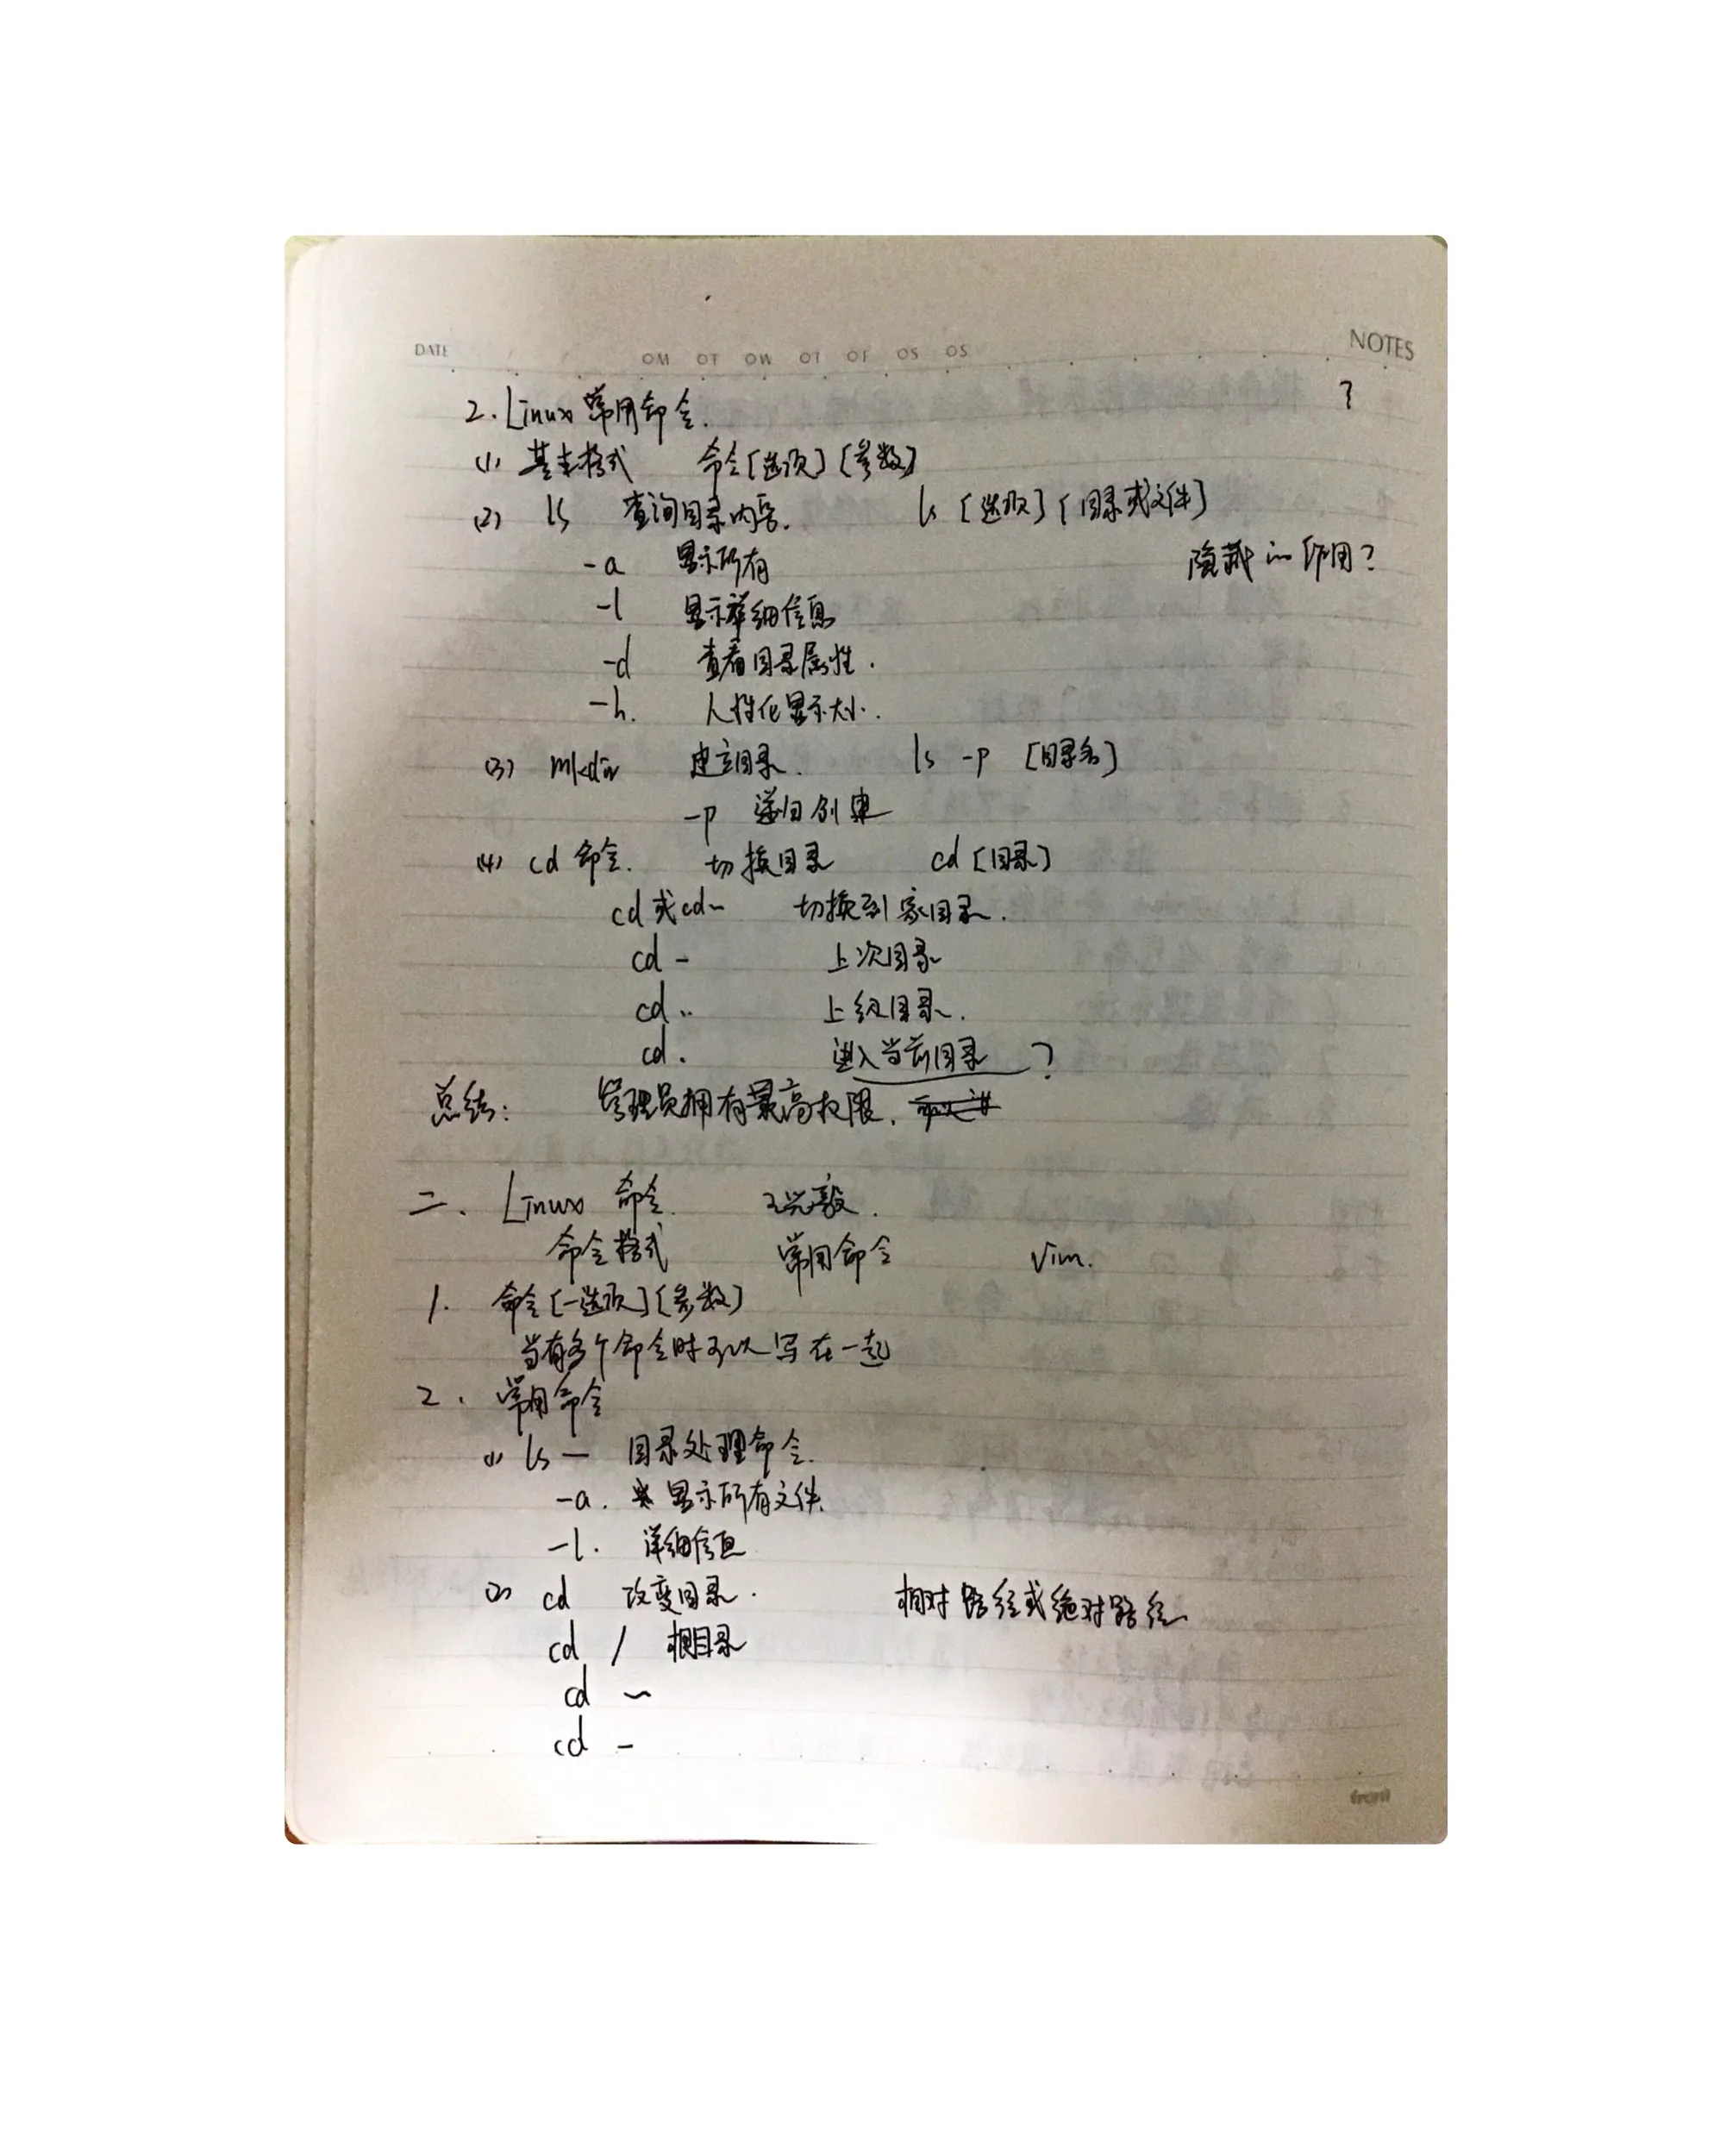 DATE OM OT OW OT OF OS OS NOTES
2. Linux 常用命令. ?
(1) 基本格式 命令[选项][参数]
(2) ls 查询目录内容. ls [选项][目录或文件]
-a 显示所有 隐藏的作用?
-l 显示详细信息
-d 查看目录属性.
-h. 人性化显示大小.
(3) mkdir 建立目录. ls -p [目录名]
-p 递归创建
(4) cd 命令. 切换目录 cd [目录]
cd或cd~ 切换到家目录.
cd - 上次目录
cd .. 上级目录.
cd . 进入当前目录 ?
总结: 管理员拥有最高权限.
二. Linux 命令.
命令格式 常用命令 Vim.
1. 命令[-选项][参数]
当有多个命令时可以写在一起
2. 常用命令
(1) ls — 目录处理命令.
-a. 显示所有文件.
-l. 详细信息
(2) cd 改变目录. 相对路径或绝对路径.
cd / 根目录
cd ~
cd -
front